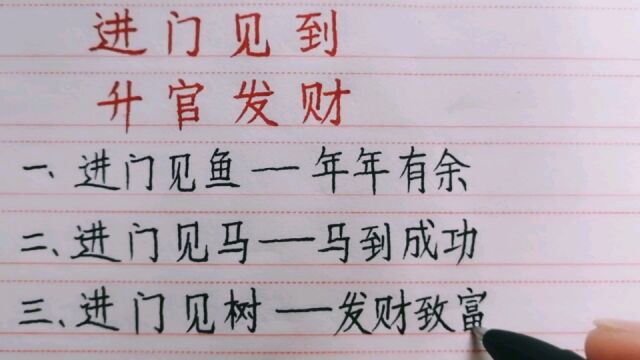 进门见到
升官发财
一、进门见鱼——年年有余
二、进门见马——马到成功
三、进门见树——发财致富